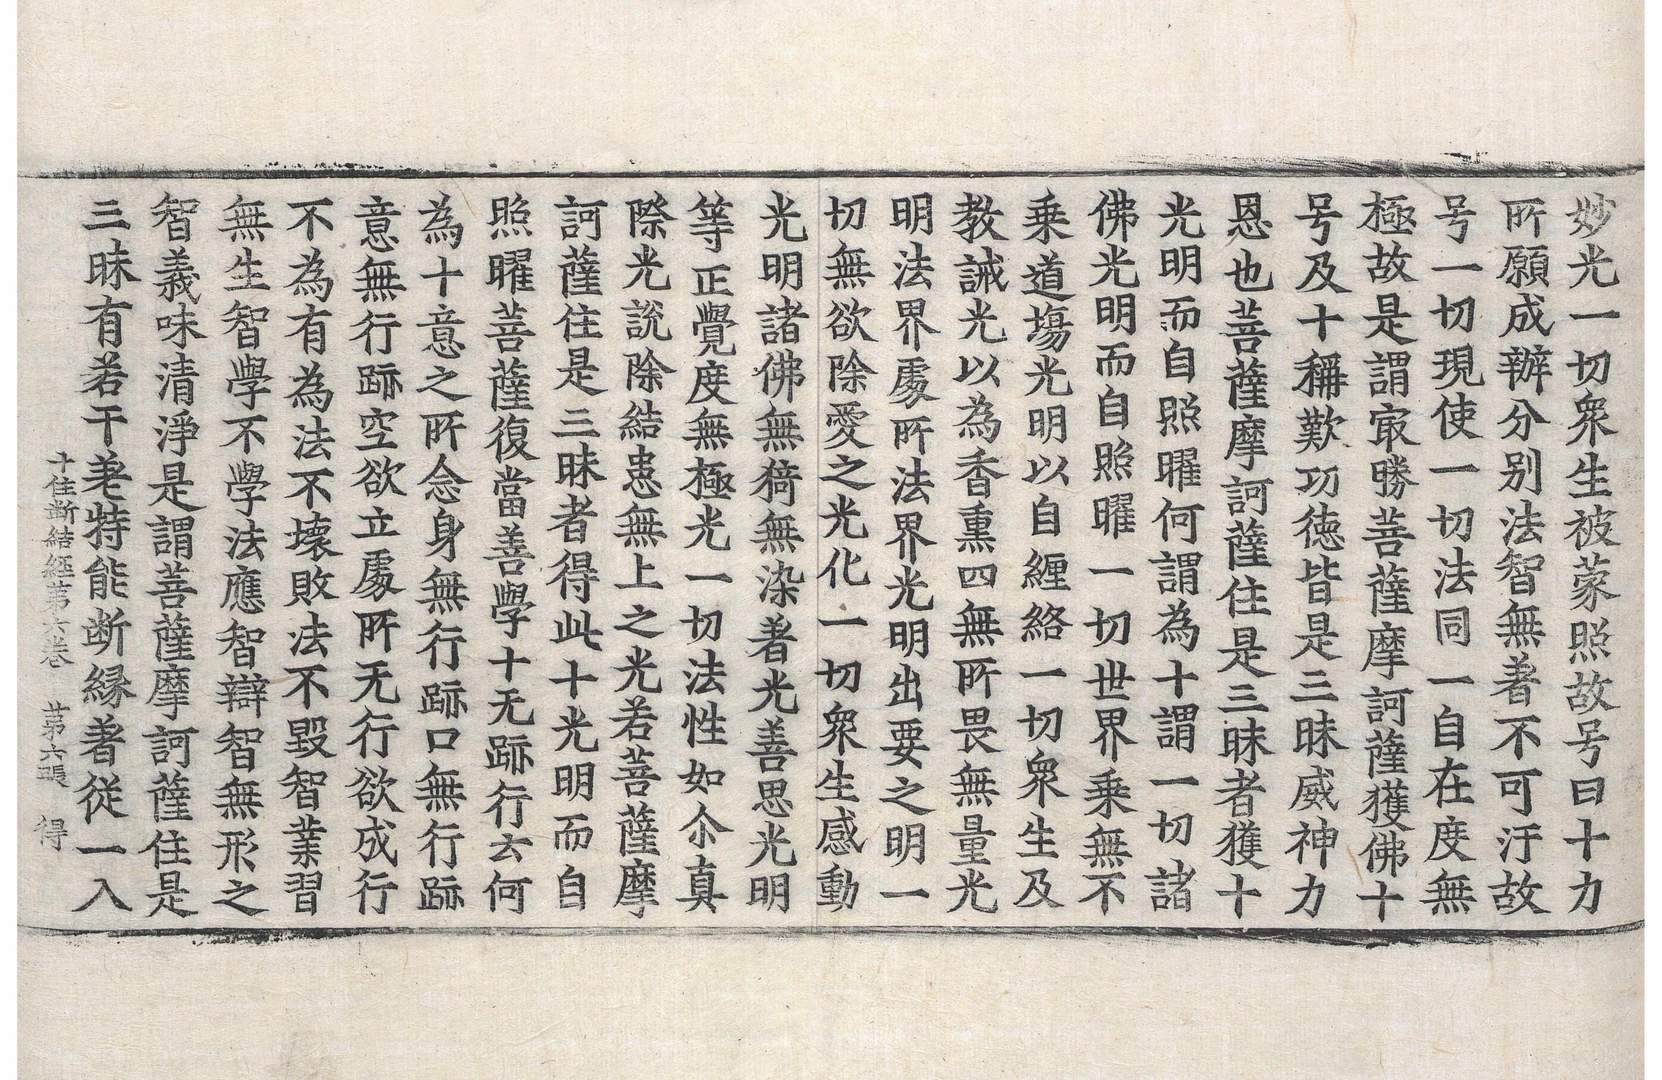 妙光一切衆生被蒙照故号曰十力
所願成辦分别法智無著不可汙故
号一切現使一切法同一自在度無
極故是謂冣勝菩薩摩訶薩獲佛十
号及十稱歎功德皆是三昧威神力
恩也菩薩摩訶薩住是三昧者獲十
光明而自照曜何謂為十謂一切諸
佛光明而自照曜一切世界乗無不
乗道塲光明以自纏絡一切衆生及
教誡光以為香熏四無所畏無量光
明法界處所法界光明出要之明一
切無欲除愛之光化一切衆生感動
光明諸佛無猗無染著光善思光明
等正覺度無極光一切法性如尒真
際光説除結恚無上之光若菩薩摩
訶薩住是三昧者得此十光明而自
照曜菩薩復當善學十无跡行云何
為十意之所念身無行跡口無行跡
意無行跡空欲立處所无行欲成行
不為有為法不壞敗法不毀智業習
無生智學不學法應智辯智無形之
智義味清淨是謂菩薩摩訶薩住是
三昧有若干㐌特能断縁著従一入
十住断結經苐六卷　苐六張　得